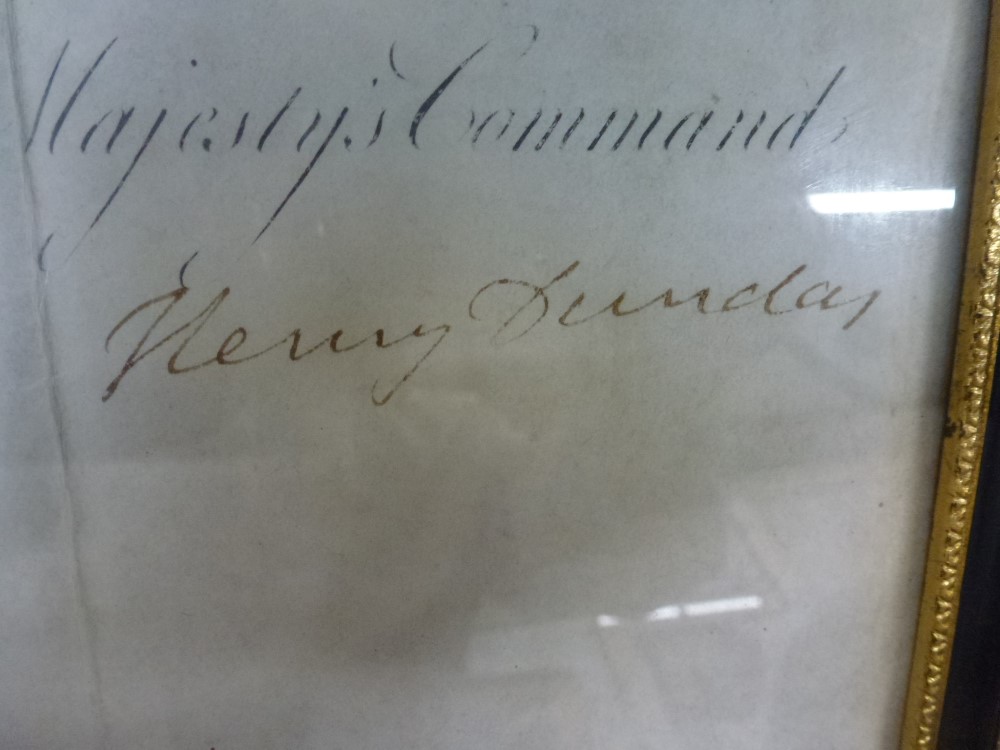 Majesty's Command,
Henry Dundas